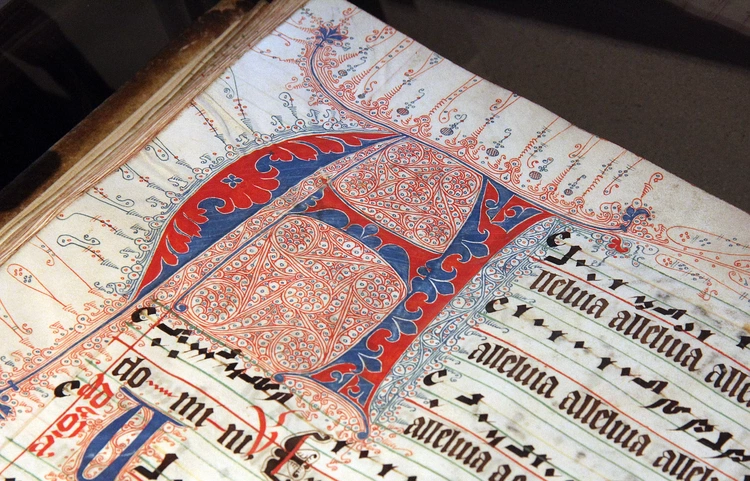 Alleluia alleluia alle
alleluia alleluia alle
alleluia
do mi ni